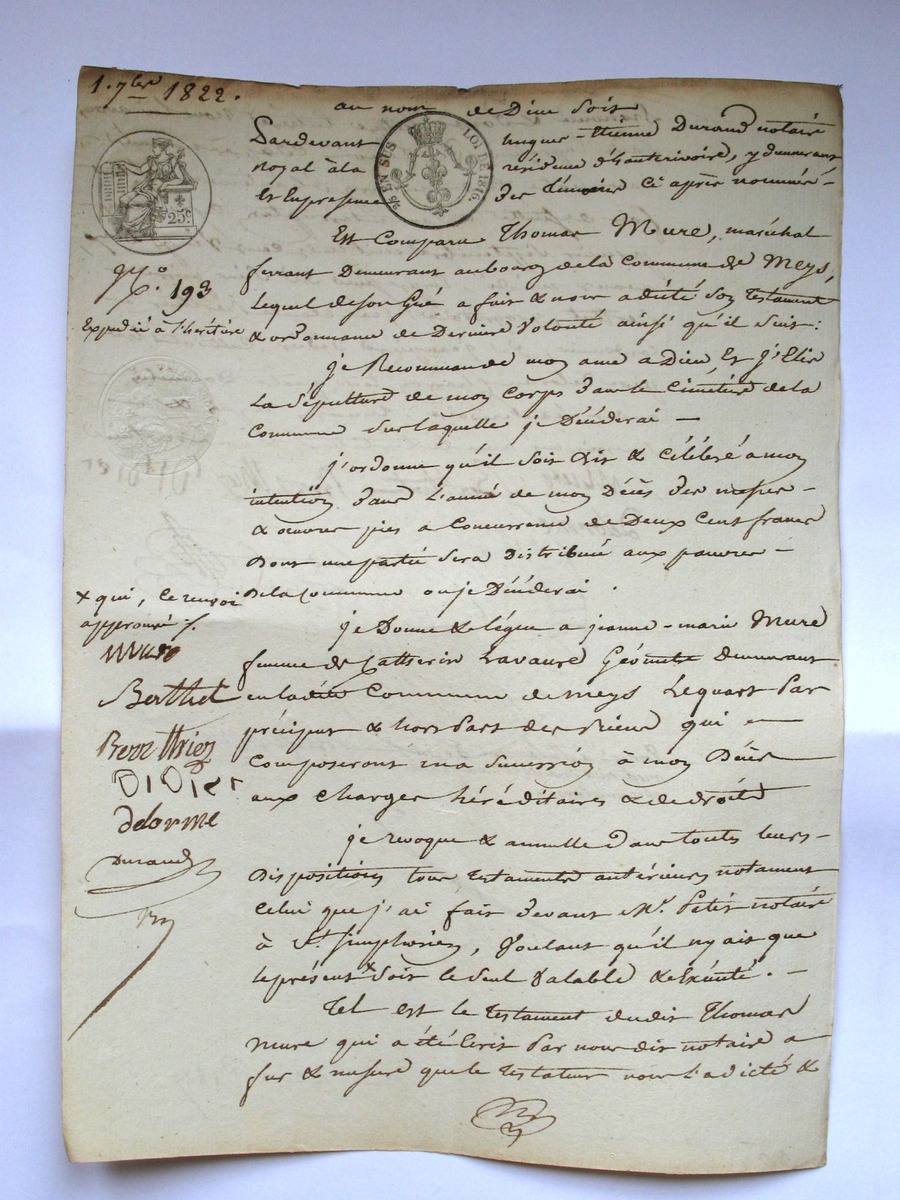 1. 7bre 1822.
au nom de Dieu soit
Pardevant hugues-Etienne Durand notaire
royal à la résidence d'hauterivoire, y demeurant
et En presence des témoins ci après nommés -
Est Comparu Thomas Mure, maréchal
ferrant Demeurant au bourg de la Commune de Meys,
Lequel de son Gré a fait & nous a dicté son testament
& ordonnance de Derniere Volonté ainsi qu'il suit:
je Recommande mon ame a Dieu, Et j'Elis
La Sépulture de mon Corps dans le Cimetière de la
Commune sur laquelle je Décéderai -
j'ordonne qu'il soit dit & célébré a mon
intention dans L'année de mon Décès des messes -
& oeuvres pies a Concurrence de Deux Cent francs
Dont une partie sera Distribuée aux pauvres -
De la Commune ou je Décéderai.
je Donne & légue a jeanne-marie Mure
femme de Catherin Lavaure Géomètre Demeurant
en ladite Commune de Meys Le quart Par
précipus & hors Part des Biens qui -
Composeront ma succession à mon Décès
aux Charges héréditaires & de droits
je revoque & annulle dans toutes leurs -
Dispositions tous testaments antérieurs notament
Celui que j'ai fait devant Mr. Petit notaire
à St. Simphorien, Voulant qu'il ny ait que
le présent x soit le seul Valable & Exécuté. -
Tel est le testament dudit Thomas
Mure qui a été Ecrit Par nous dit notaire a
fur & mesure que le testateur nous l'a dicté &
25 EN SUS
LOI DE 1816.
25c
No. 193
Expédié à l'héritière
x qui, ce renvoi
approuvé /.
Mure
Berthet
DiDier
delorme
Durand